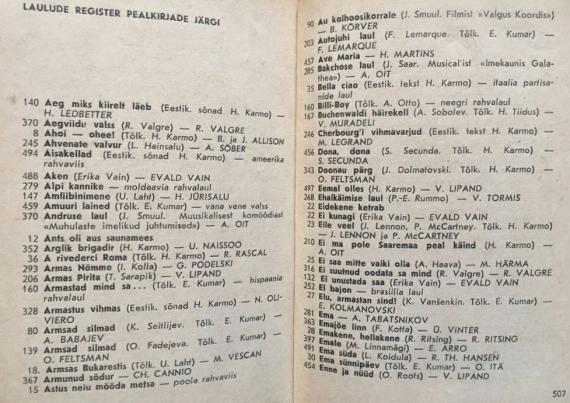 LAULUDE REGISTER PEALKIRJADE JÄRGI
140 Aeg miks kiirelt läeb (Eestik. sõnad H. Karmo) —
H. LEDBETTER
370 Aegviidu valss (R. Valgre) — R. VALGRE
8 Ahoi — ohee! (Tõlk. H. Karmo) — B. ja J. ALLISON
245 Ahvenate valvur (L. Hainsalu) — A. SÖBER
494 Aisakellad (Eestik. sõnad H. Karmo) — ameerika
rahvaviis
488 Aken (Erika Vain) — EVALD VAIN
279 Alpi kannike — moldaavia rahvalaul
147 Amfiibinimene (U. Laht) — H. JÜRISALU
459 Amuuri lained (Tõlk. E. Kumar) — vana vene valss
370 Andruse laul (J. Smuul. Muusikalisest komöödiast
«Muhulaste imelikud juhtumised») — A. OIT
12 Ants oli aus saunamees
352 Arglik brigadir (H. Karmo) — U. NAISSOO
36 A rivederci Roma (Tõlk. H. Karmo) — R. RASCAL
293 Armas Nõmme (I. Kolla) — G. PODELSKI
206 Armas Pirita (T. Sarapik) — V. LIPAND
160 Armastad mind sa... (Tõlk. E. Kumar) — hispaania
rahvalaul
328 Armastus vihmas (Eestik. sõnad H. Karmo) — N. OLI-
VIERO
80 Armsad silmad (K. Seitlijev. Tõlk. E. Kumar) —
A. BABAJEV
139 Armsad silmad (O. Fadejeva. Tõlk. E. Kumar) —
O. FELTSMAN
18. Armsas Bukarestis (Tõlk. U. Laht) — M. VESCAN
367 Armunud sõdur — CH. CANNIO
15 Astus neiu mööda metsa — poola rahvaviis
90 Au kolhoosikorrale (J. Smuul. Filmist «Valgus Koordis»)
— B. KÕRVER
203 Autojuhi laul (F. Lemarque. Tõlk. E. Kumar) —
F. LEMARQUE
457 Ave Maria — H. MARTINS
285 Bakchose laul (J. Saar. Musical'ist «Imekaunis Gala-
thea») — A. OIT
35 Bella ciao (Eestik. tekst H. Karmo) — itaalia partisa-
nide laul
160 Billi-Boy (Tõlk. A. Otto) — neegri rahvalaul
167 Buchenwaldi häirekell (A. Sobolev. Tõlk. H. Tiidus) —
V. MURADELI
246 Cherbourg'i vihmavarjud (Eestik. tekst H. Karmo) —
M. LEGRAND
456 Dona, dona (S. Secunda. Tõlk. H. Karmo) —
S. SECUNDA
343 Doonau pärg (J. Dolmatovski. Tõlk. H. Karmo) —
O. FELTSMAN
497 Eemal olles (H. Karmo) — V. LIPAND
268 Ehalkäimise laul (P.-E. Rummo) — V. TORMIS
22 Eidekene ketrab
22 Ei kunagi (Erika Vain) — EVALD VAIN
23 Eile veel (J. Lennon, P. McCartney. Tõlk. H. Karmo)
— J. LENNON ja P. McCARTNEY
210 Ei ma pole Saaremaa peal käind (H. Karmo) —
A. OIT
25 Ei saa mitte vaiki olla (A. Haava) — M. HÄRMA
316 Ei suutnud oodata sa mind (R. Valgre) — R. VALGRE
132 Ei unustada saa (Erika Vain) — EVALD VAIN
252 Ei bajon — brasiilia laul
27 Elu, armastan sind! (K. Vanšenkin. Tõlk. E. Kumar) —
E. KOLMANOVSKI
281 Ema — A. TABATŠNIKOV
363 Emajõe linn (F. Kotta) — Ü. VINTER
28 Emakene, hellakene (R. Ritsing) — R. RITSING
397 Emale (M. Linnamägi) — E. ARRO
491 Ema süda (L. Koidula) — R. TH. HANSEN
30 Ema sünnipäev (Tõlk. E. Kumar) — O. ITÄ
454 Enne ja nüüd (O. Roots) — V. LIPAND
507